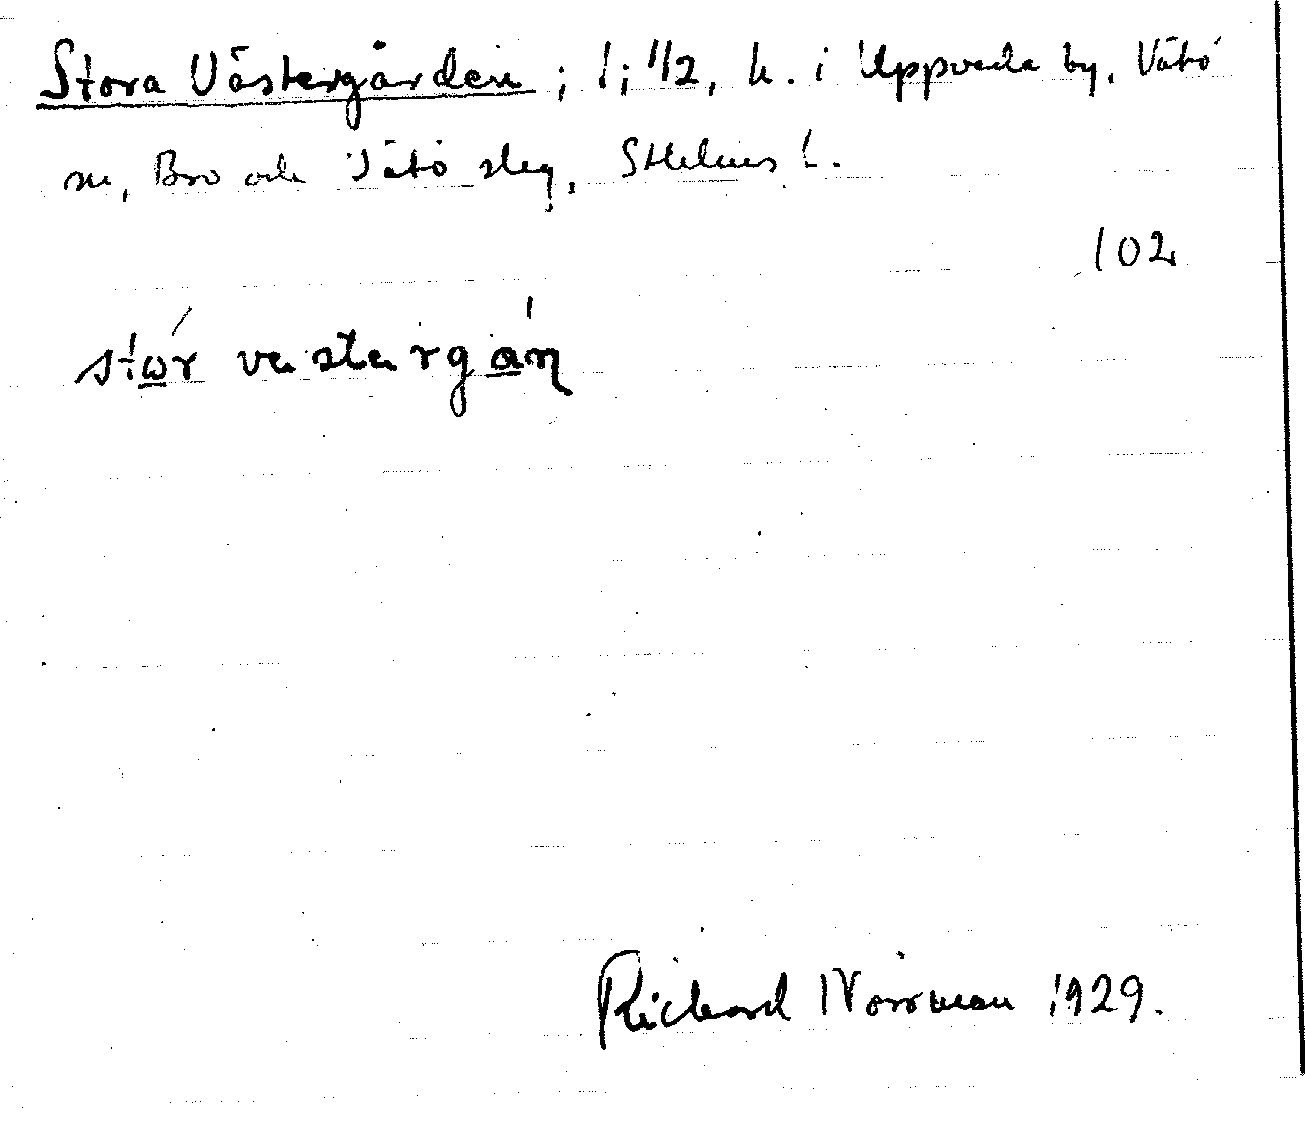 Stora Västergården; 1; 1/2, h. i Uppveda by, Vätö
sn, Bro och Vätö skg, Sthlms l.
102
stωr vestergán
Richard Norrman 1929.